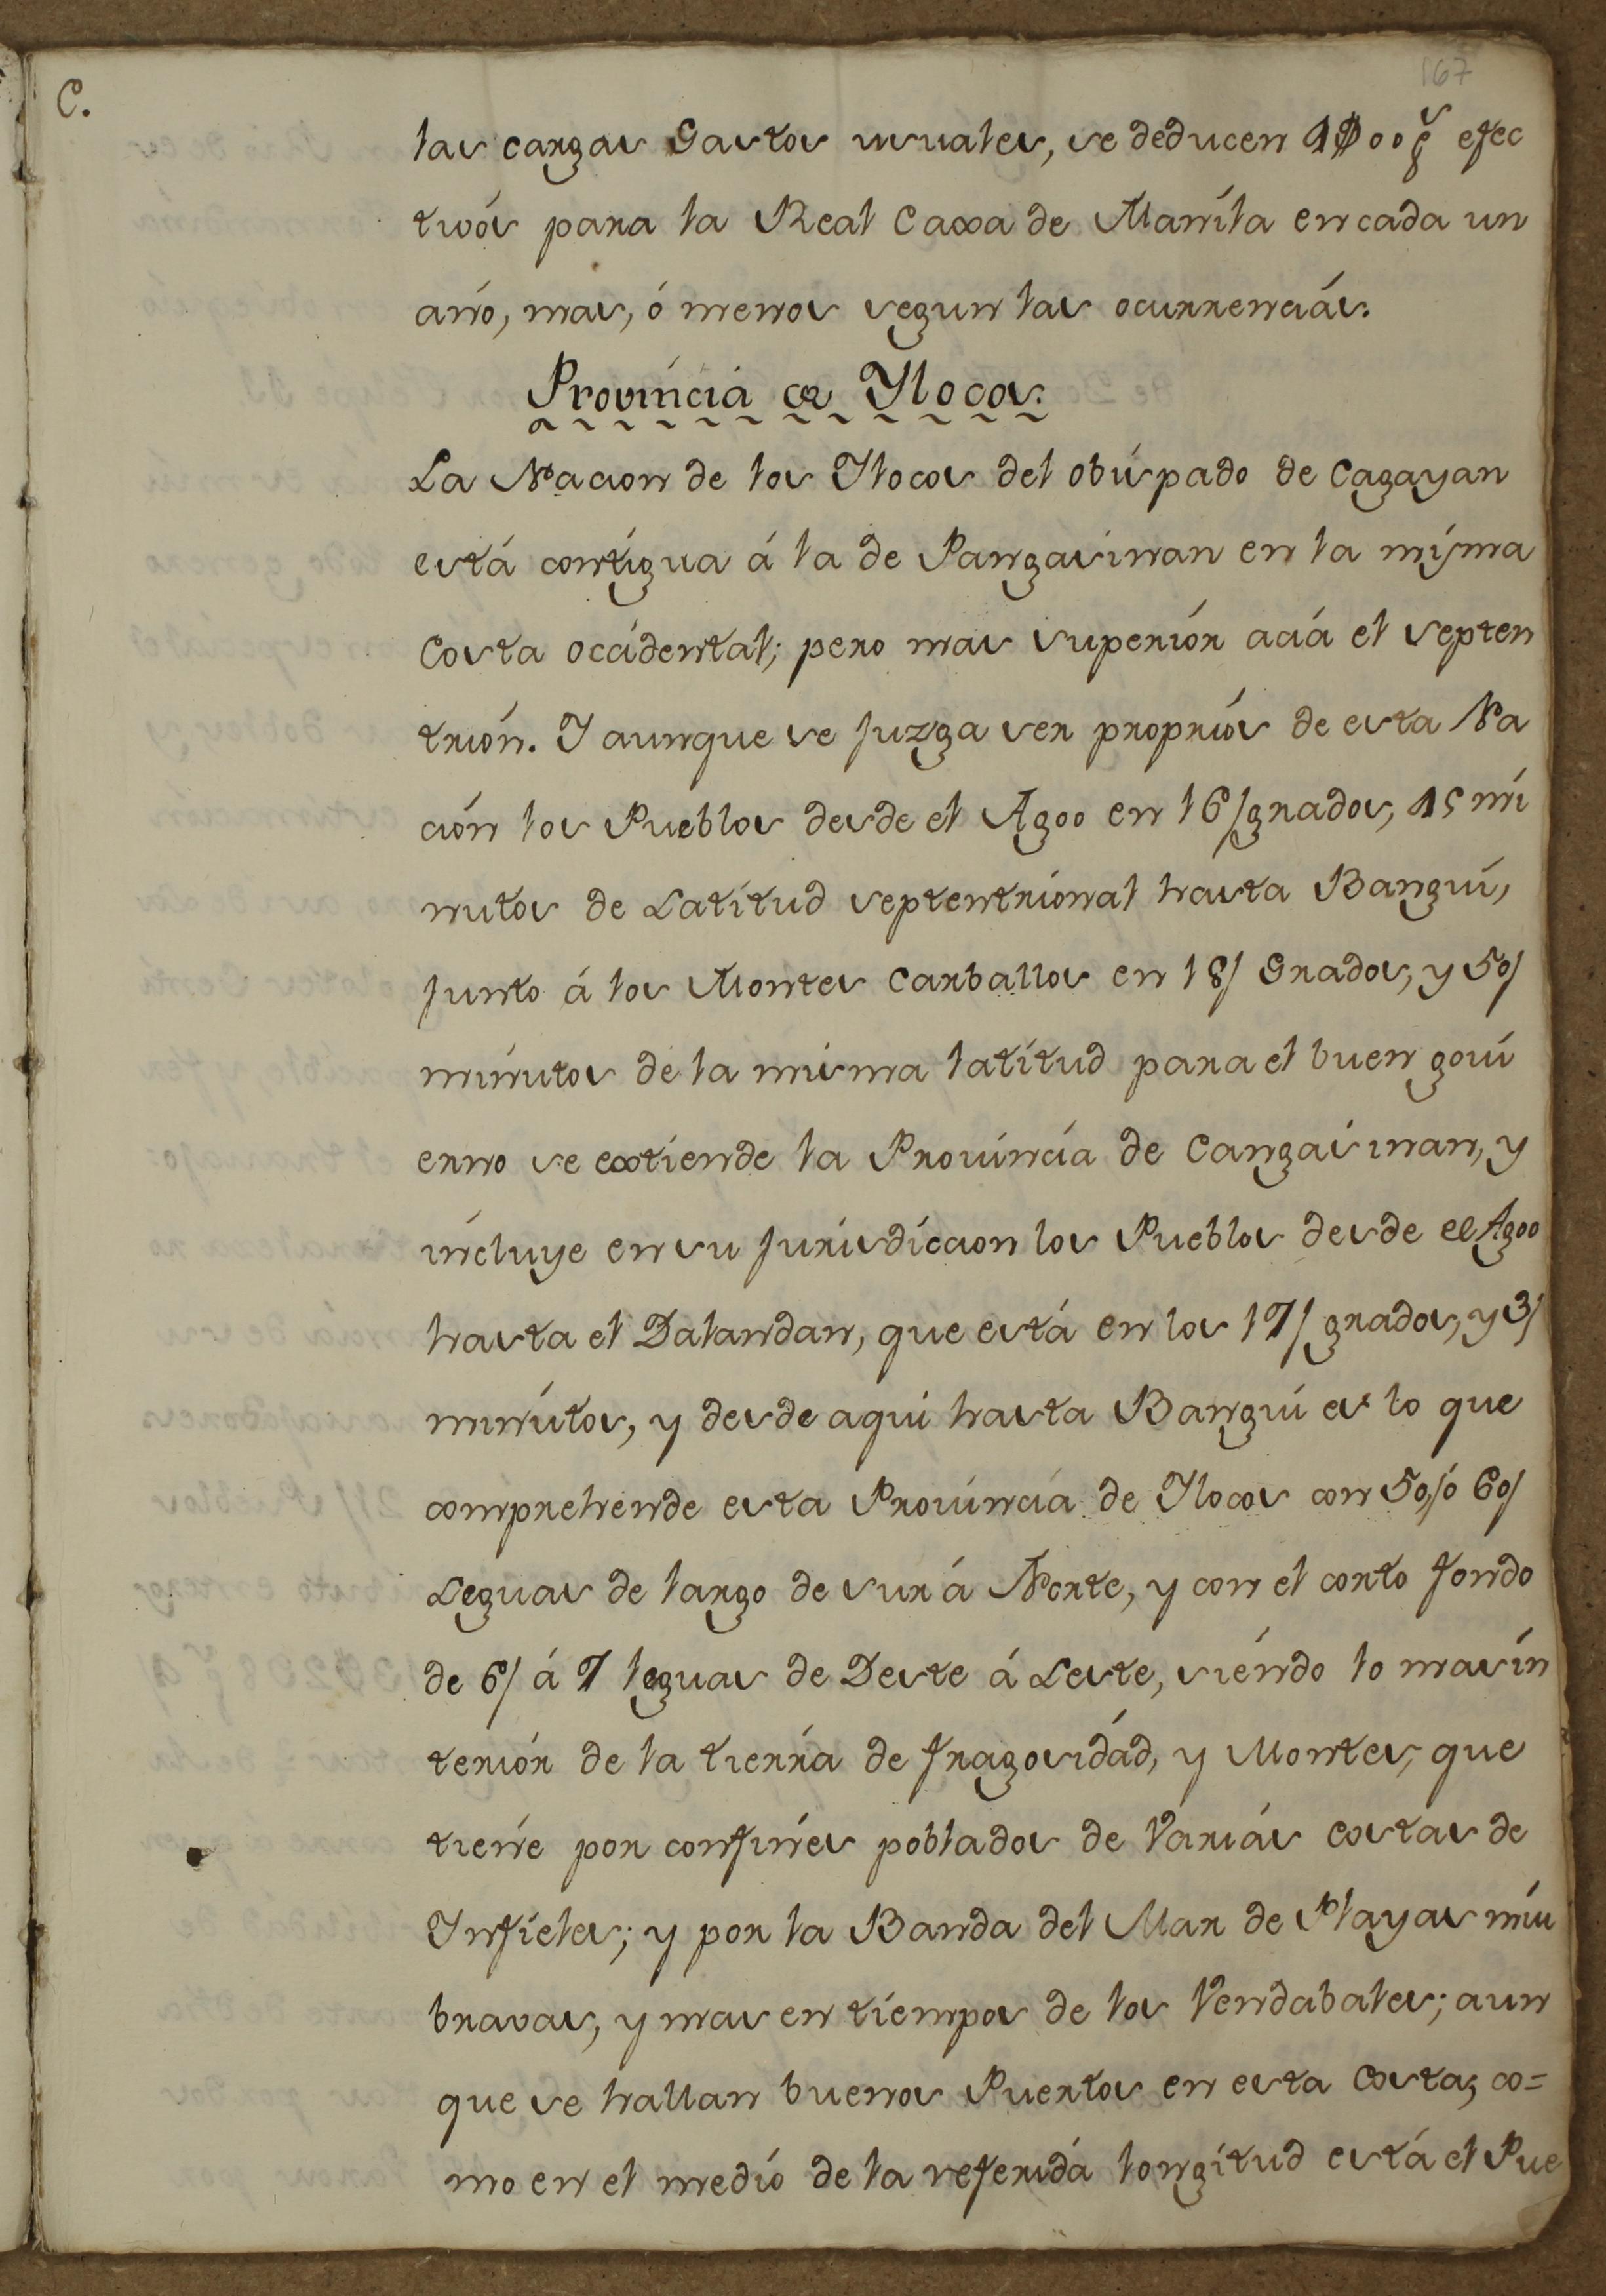 167
C.
las cargas Gastos usuales, se deducen efec
tivós para la Real Caxa de Maníla en cada un
año, mas, ó menos segun las ocurrenciás.
Províncià de Ylocos.
La Nacion de los Ylocos del obíspado de Cagayan
está contígua á la de Pangasinan en la mísma
Costa occídental; pero mas superiór aciá el septen
trión. Y aunque se juzga ser propriós de esta Na
ción los Pueblos desde el Agoo en 16/grados, 15 mi
nutos de Latítud septentríonal hasta Banguí,
junto á los Montes Carballos en 18/ Grados, y 50/
minutos de la misma latítud para el buen goui
erno se extíende la Prouíncía de Cangasinan, y
íncluye en su jurisdíccion los Pueblos desde el Agoo
hasta el Dalandan, que está en los 17/ grados, y 3/
minútos, y desde aqui hasta Banguí es lo que
comprehende esta Prouíncia de Ylocos con 50/ó 60/
Leguas de largo de sur á Norte, y con el corto fondo
de 6/ á 7 leguas de Oeste á Leste, siéndo lo mas ín
teriór de la tierrá de fragosidád, y Montes, que
tiene por confínes poblados de Variás castas de
Infíeles; y por la Banda del Mar de Playas mui
bravas, y mas en tíempos de los Vendabales; aun
que se hallan buenos Puertos en esta Costa, co=
mo en el medío de la referidá longítud está el Pue